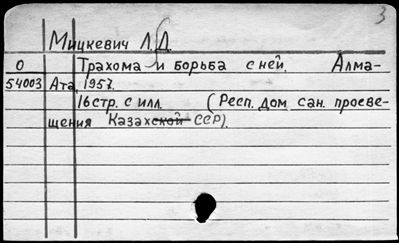 3
Мицкевич Л.Д.
0 Трахома и борьба с ней. Алма-
54003 Ата, 1957.
16 стр. с илл. (Респ. дом сан. просве-
щения Казахской ССР).